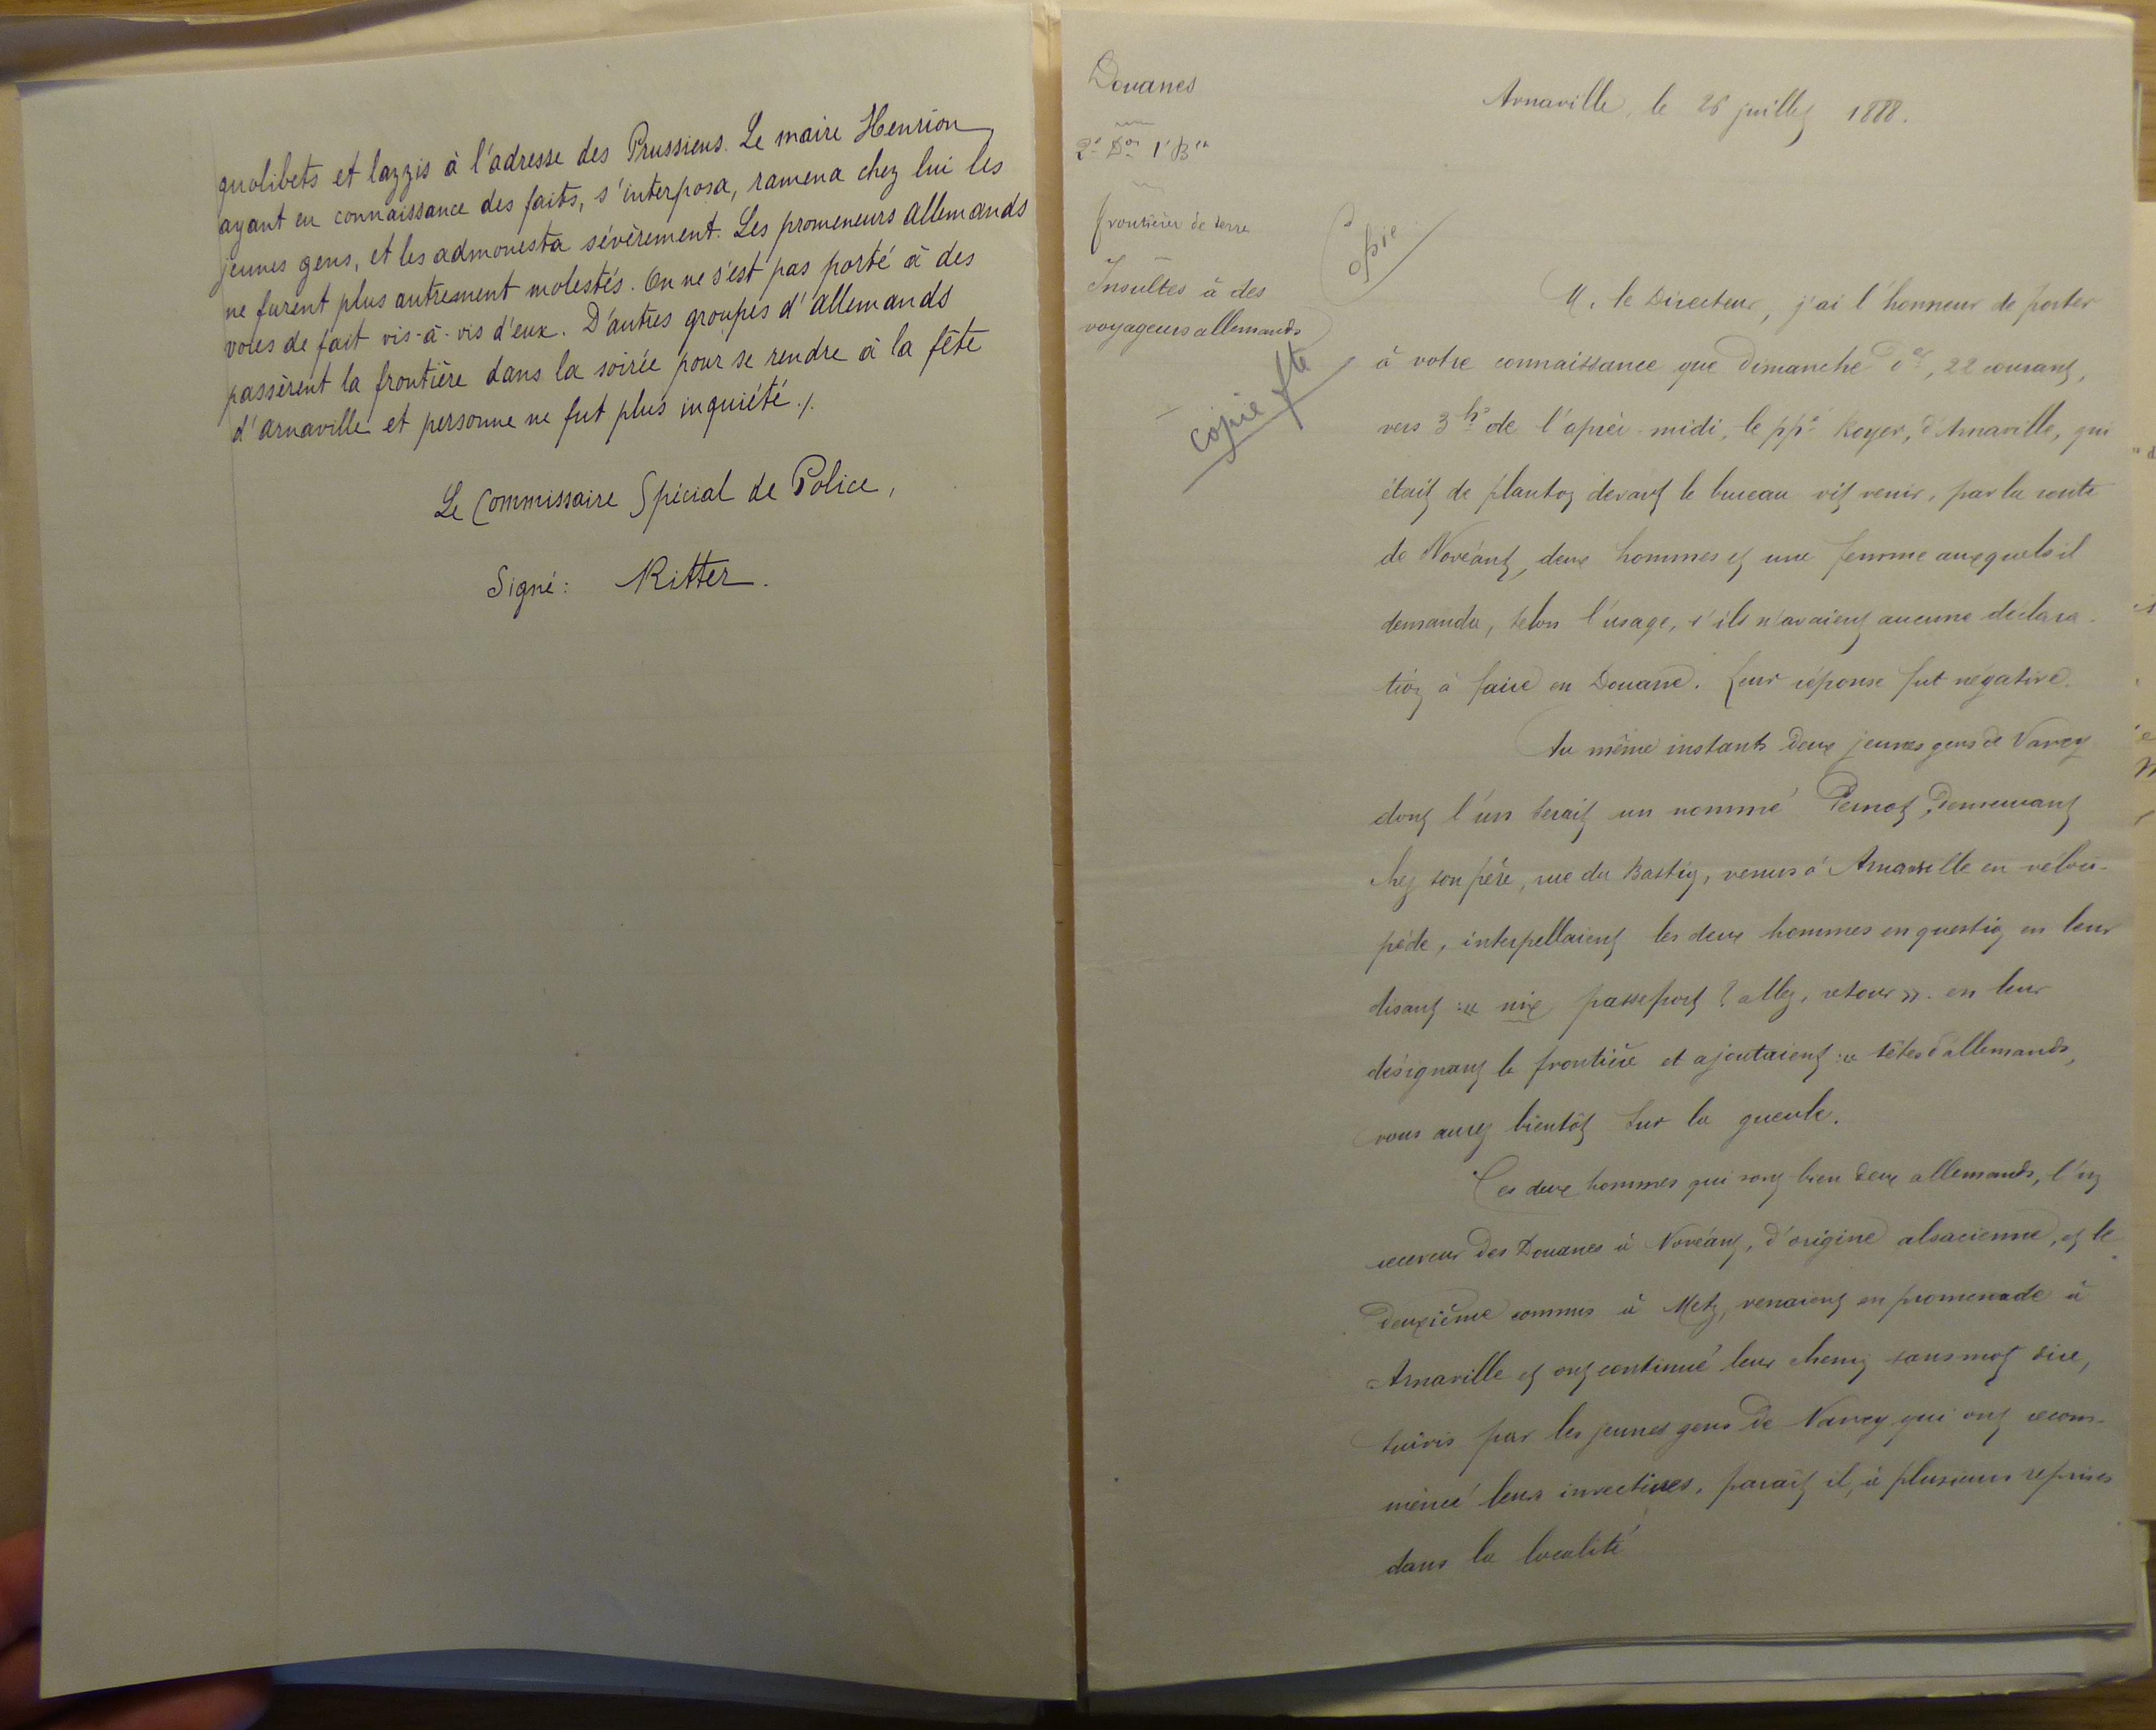 quolibets et lazzis à l'adresse des Prussiens. Le maire Henrion
ayant eu connaissance des faits, s'interposa, ramena chez lui les
jeunes gens, et les admonesta sévèrement. Les promeneurs allemands
ne furent plus autrement molestés. On ne s'est pas porté à des
voies de fait vis-à-vis d'eux. D'autres groupes d'allemands
passèrent la frontière dans la soirée pour se rendre à la fête
d'arnaville et personne ne fut plus inquiété ./.
Le Commissaire Spécial de Police,
Signé: Ritter.
Douanes
2e Don 1e Bon
frontière de terre
Insultes à des
voyageurs allemands
Copie
copie fte
Arnaville, le 26 juillet 1888.
M. le Directeur, j'ai l'honneur de porter
à votre connaissance que dimanche der, 22 courant,
vers 3 hs de l'après-midi, le ppé Royer, d'Arnaville, qui
était de planton devant le bureau vit venir, par la route
de Novéant, deux hommes et une femme auxquels il
demanda, selon l'usage, s'ils n'avaient aucune déclara-
tion à faire en Douane. Leur réponse fut négative.
Au même instant deux jeunes gens de Nancy
dont l'un serait un nommé Pernot, demeurant
chez son père, rue du Bastion, venus à Arnaville en véloci-
pède, interpellaient les deux hommes en question en leur
disant : « nix passeport ? allez, retour ». en leur
désignant la frontière et ajoutaient : « têtes d'allemands,
vous aurez bientôt sur la gueule.
Ces deux hommes qui sont bien deux allemands, l'un
receveur des Douanes à Novéant, d'origine alsacienne, et le
deuxième commis à Metz, venaient en promenade à
Arnaville et ont continué leur chemin sans mot dire,
suivis par les jeunes gens de Nancy qui ont recom-
mencé leurs invectives, paraît il, à plusieurs reprises
dans la localité